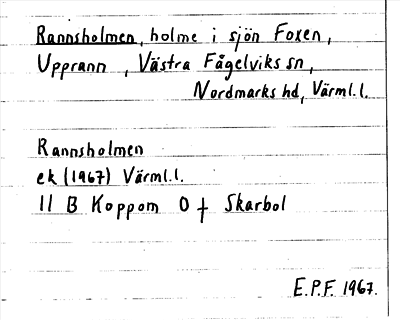 Rannsholmen, holme i sjön Foxen,
Upprann, Västra Fågelviks sn,
Nordmarks hd, Värml.l.
Rannsholmen
ek (1967) Värml.l.
11 B Koppom O f Skarbol
E.P.F. 1967.